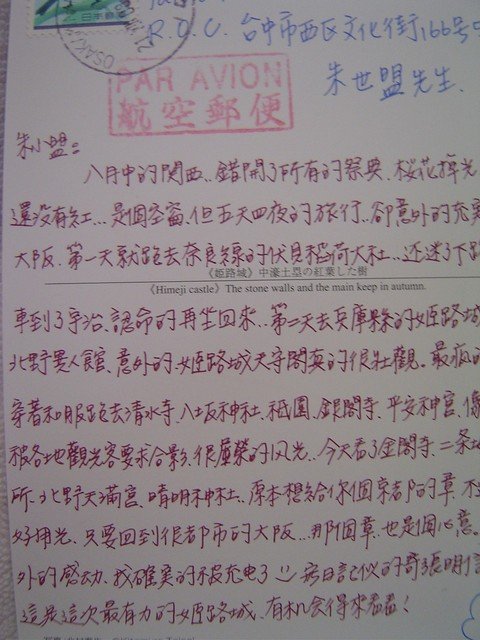 日本郵便
OSAKA
R.O.C. 台中市西区文化街166号
朱世盟先生.
PAR AVION
航空郵便
朱小盟:
八月中的関西..錯開了所有的祭典、桜花掉光
還没有紅...是個空窗、但五天四夜的旅行..卻意外的充
大阪、第一天就跑去奈良線的伏見稻荷大社...还迷了路
《姫路城》中濠土塁の紅葉した樹
《Himeji castle》The stone walls and the main keep in autumn.
車到了宇治、認命的再坐回來..第二天去兵庫縣的姫路城
北野異人館、意外的、姫路城天守閣真的很壯觀。最瘋的
穿着和服跑去清水寺、八坂神社、祇園、銀閣寺、平安神宮、像
被各地觀光客要求合影、很虛榮的风光、今天看了金閣寺、二条
所、北野天満宮、晴明神社、原本想給你個京都的章、不
好用光、只要回到很都市的大阪...那個章、也是個心意。
外的感动、我確実的被充电了 宛日記似的夸張明信
這是這次最有力的姫路城、有机会得來看看！